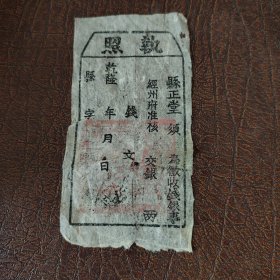 執照
縣正堂 須 為徵收錢銀事
經州府准核 交銀 兩
錢 文
乾隆 年 月 日
縣 字